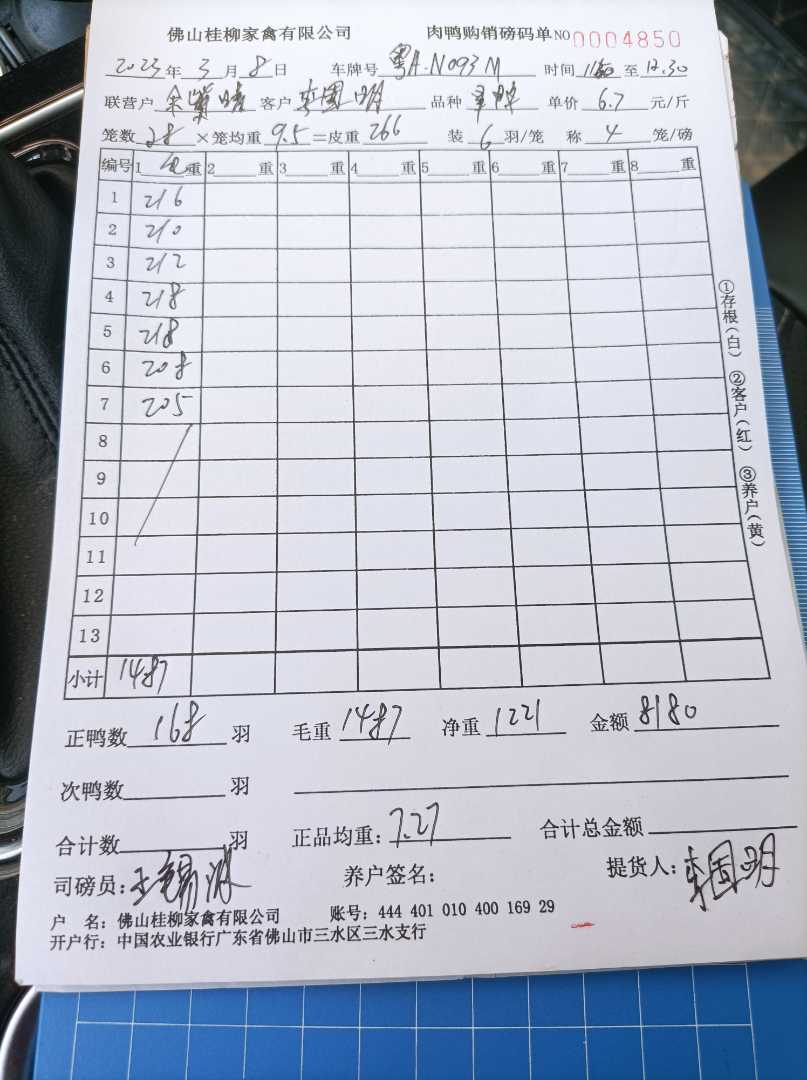 佛山桂柳家禽有限公司 肉鸭购销磅码单NO 0004850
2023年3月8日 车牌号 粤A·N093M 时间 至 12.30
联营户 客户 李国明 品种 单价 6.7 元/斤
笼数 28 ×笼均重 9.5 =皮重 266 装 6 羽/笼 称 4 笼/磅
编号 1 重 2 重 3 重 4 重 5 重 6 重 7 重 8 重
1 216
2 210
3 212
4 218
5 218
6 208
7 205
8
9
10
11
12
13
小计 1487
正鸭数 168 羽 毛重 1487 净重 1221 金额 8180
次鸭数 羽
合计数 羽 正品均重: 7.27 合计总金额
司磅员: 养户签名: 提货人: 李国明
户 名: 佛山桂柳家禽有限公司 账号: 444 401 010 400 169 29
开户行: 中国农业银行广东省佛山市三水区三水支行
①存根(白) ②客户(红) ③养户(黄)